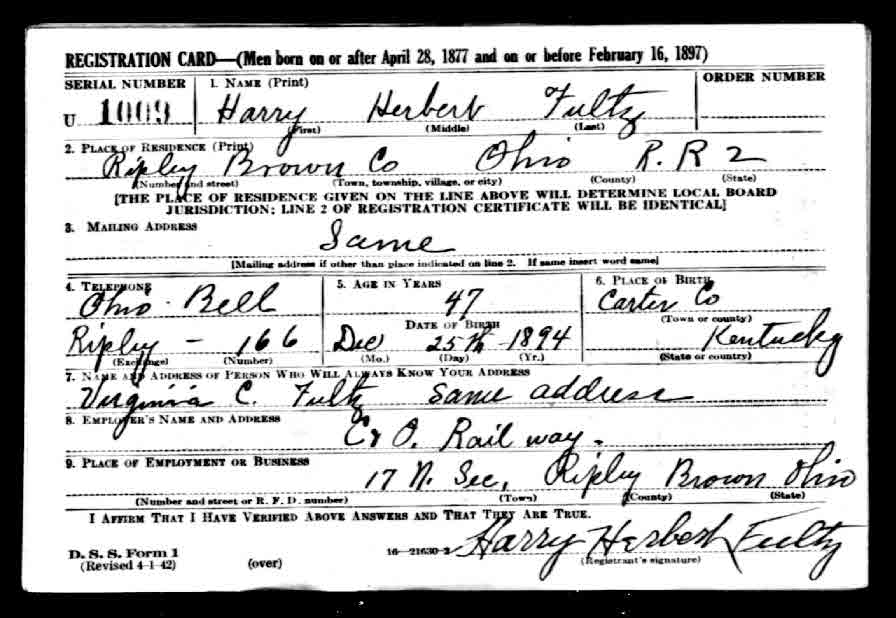 REGISTRATION CARD—(Men born on or after April 28, 1877 and on or before February 16, 1897)
SERIAL NUMBER 1. NAME (Print) ORDER NUMBER
U 1009 Harry Herbert Fultz
(First) (Middle) (Last)
2. PLACE OF RESIDENCE (Print)
Ripley Brown Co Ohio R.R 2
(Number and street) (Town, township, village, or city) (County) (State)
[THE PLACE OF RESIDENCE GIVEN ON THE LINE ABOVE WILL DETERMINE LOCAL BOARD
JURISDICTION; LINE 2 OF REGISTRATION CERTIFICATE WILL BE IDENTICAL]
3. MAILING ADDRESS
Same
[Mailing address if other than place indicated on line 2. If same insert word same]
4. TELEPHONE 5. AGE IN YEARS 6. PLACE OF BIRTH
Ohio Bell 47 Carter Co
DATE OF BIRTH (Town or county)
Ripley - 166 Dec 25th 1894 Kentucky
(Exchange) (Number) (Mo.) (Day) (Yr.) (State or country)
7. NAME AND ADDRESS OF PERSON WHO WILL ALWAYS KNOW YOUR ADDRESS
Virginia C. Fultz Same address
8. EMPLOYER'S NAME AND ADDRESS
C & O. Rail way.
9. PLACE OF EMPLOYMENT OR BUSINESS
17 N. Sec, Ripley Brown Ohio
(Number and street or R. F. D. number) (Town) (County) (State)
I AFFIRM THAT I HAVE VERIFIED ABOVE ANSWERS AND THAT THEY ARE TRUE.
D. S. S. Form 1 16—21630-2 Harry Herbert Fultz
(Revised 4-1-42) (over) (Registrant's signature)